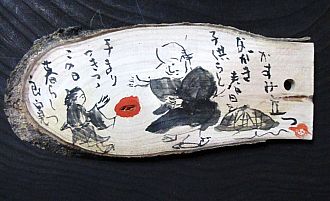 かすみ立つ
ながき春日を
子供らと
手まり
つきつつ
この日
暮らしつ
良寛